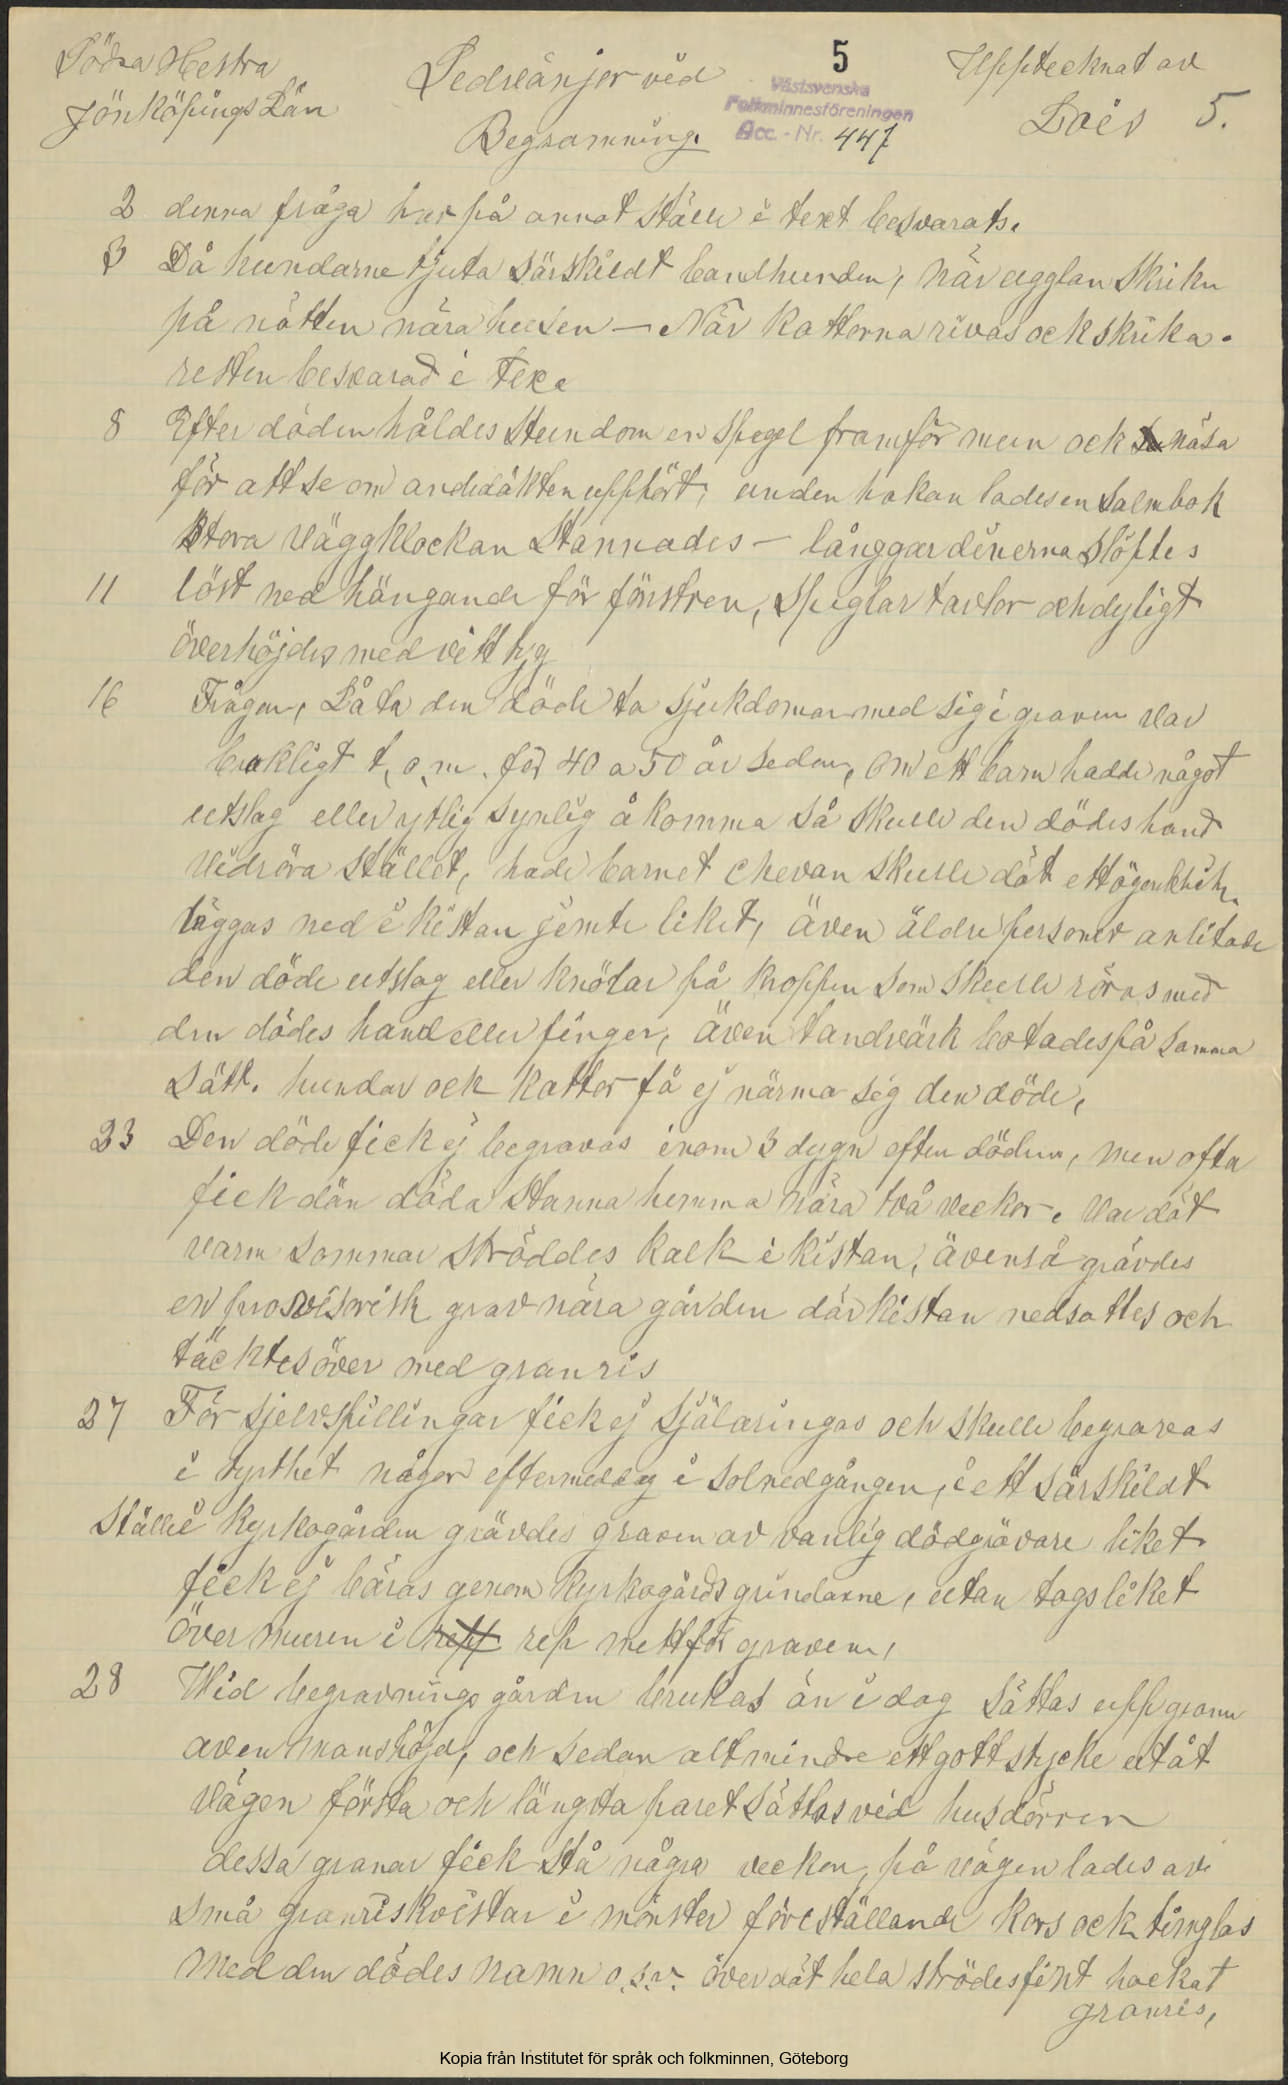 Södra Hestra
Jönköpings Län
Sedvänjor vid
Begravning.
5
Västsvenska
Folkminnesföreningen
Acc. - Nr. 447
Upptecknat av
5.
2 denna fråga har på annat ställe i text besvarats.
3 Då hundarne tjuta särskildt bandhunden, när ugglan skriker
på natten nära husen — När kattorna rivas ock skrika.
resten besvarad i tex.
8 Efter döden håldes stundom en spegel framför mun ock näsa
för att se om andedäkten upphört, under hakan lades en salmbok
stora väggklockan stannades — långgardinerna slöptes
11 löst ned hängande för fönstren, speglar tavlor och dyligt
överhöjdes med vitt tyg
16 Frågan, Låta den döde ta sjukdomar med sig i graven var
brukligt t, o, m. för 40 a 50 år sedan, om ett barn hadde något
utslag eller ytlig synlig å komma så skulle den dödes hand
vidröra stället, hade barnet chevan skulle dät ett ögenblick
läggas ned i kistan jemte liket, även äldre personer anlitade
den döde utslag eller knölar på kroppen som skulle röras med
den dödes hand eller finger, även tandvärk botades på samma
sätt. hundar ock kattor få ej närma sig den döde,
23 Den döde fick ej begravas inom 3 dygn efter döden, men ofta
fick dän döda stanna hemma nära två veckor. var dät
varm sommar ströddes kalk i kistan, ävenså grävdes
en provisorisk grav nära gården där kistan nedsattes och
täcktes över med granris
27 För sjelvspillingar fick ej själaringas och skulle begravas
i tysthet någon eftermeddag i solnedgången, i ett särskildt
ställe i kyrkogården grävdes graven av vanlig dödgrävare liket
fick ej bäras genom kyrkogårds grindarne, utan togs liket
över muren i rep mitt för graven,
28 Wid begravnings gården brukas än i dag sättas upp granar
av en manshöjd, och sedan alt mindre ett gott stycke utåt
vägen första och längsta paret sättas vid husdörren
dessa granar fick stå några veckor, på vägen lades av
små granriskvistar i mönster föreställande kors ock timglas
med den dödes namn o.s.v. över dät hela strödes fint hackat
granris,
Kopia från Institutet för språk och folkminnen, Göteborg